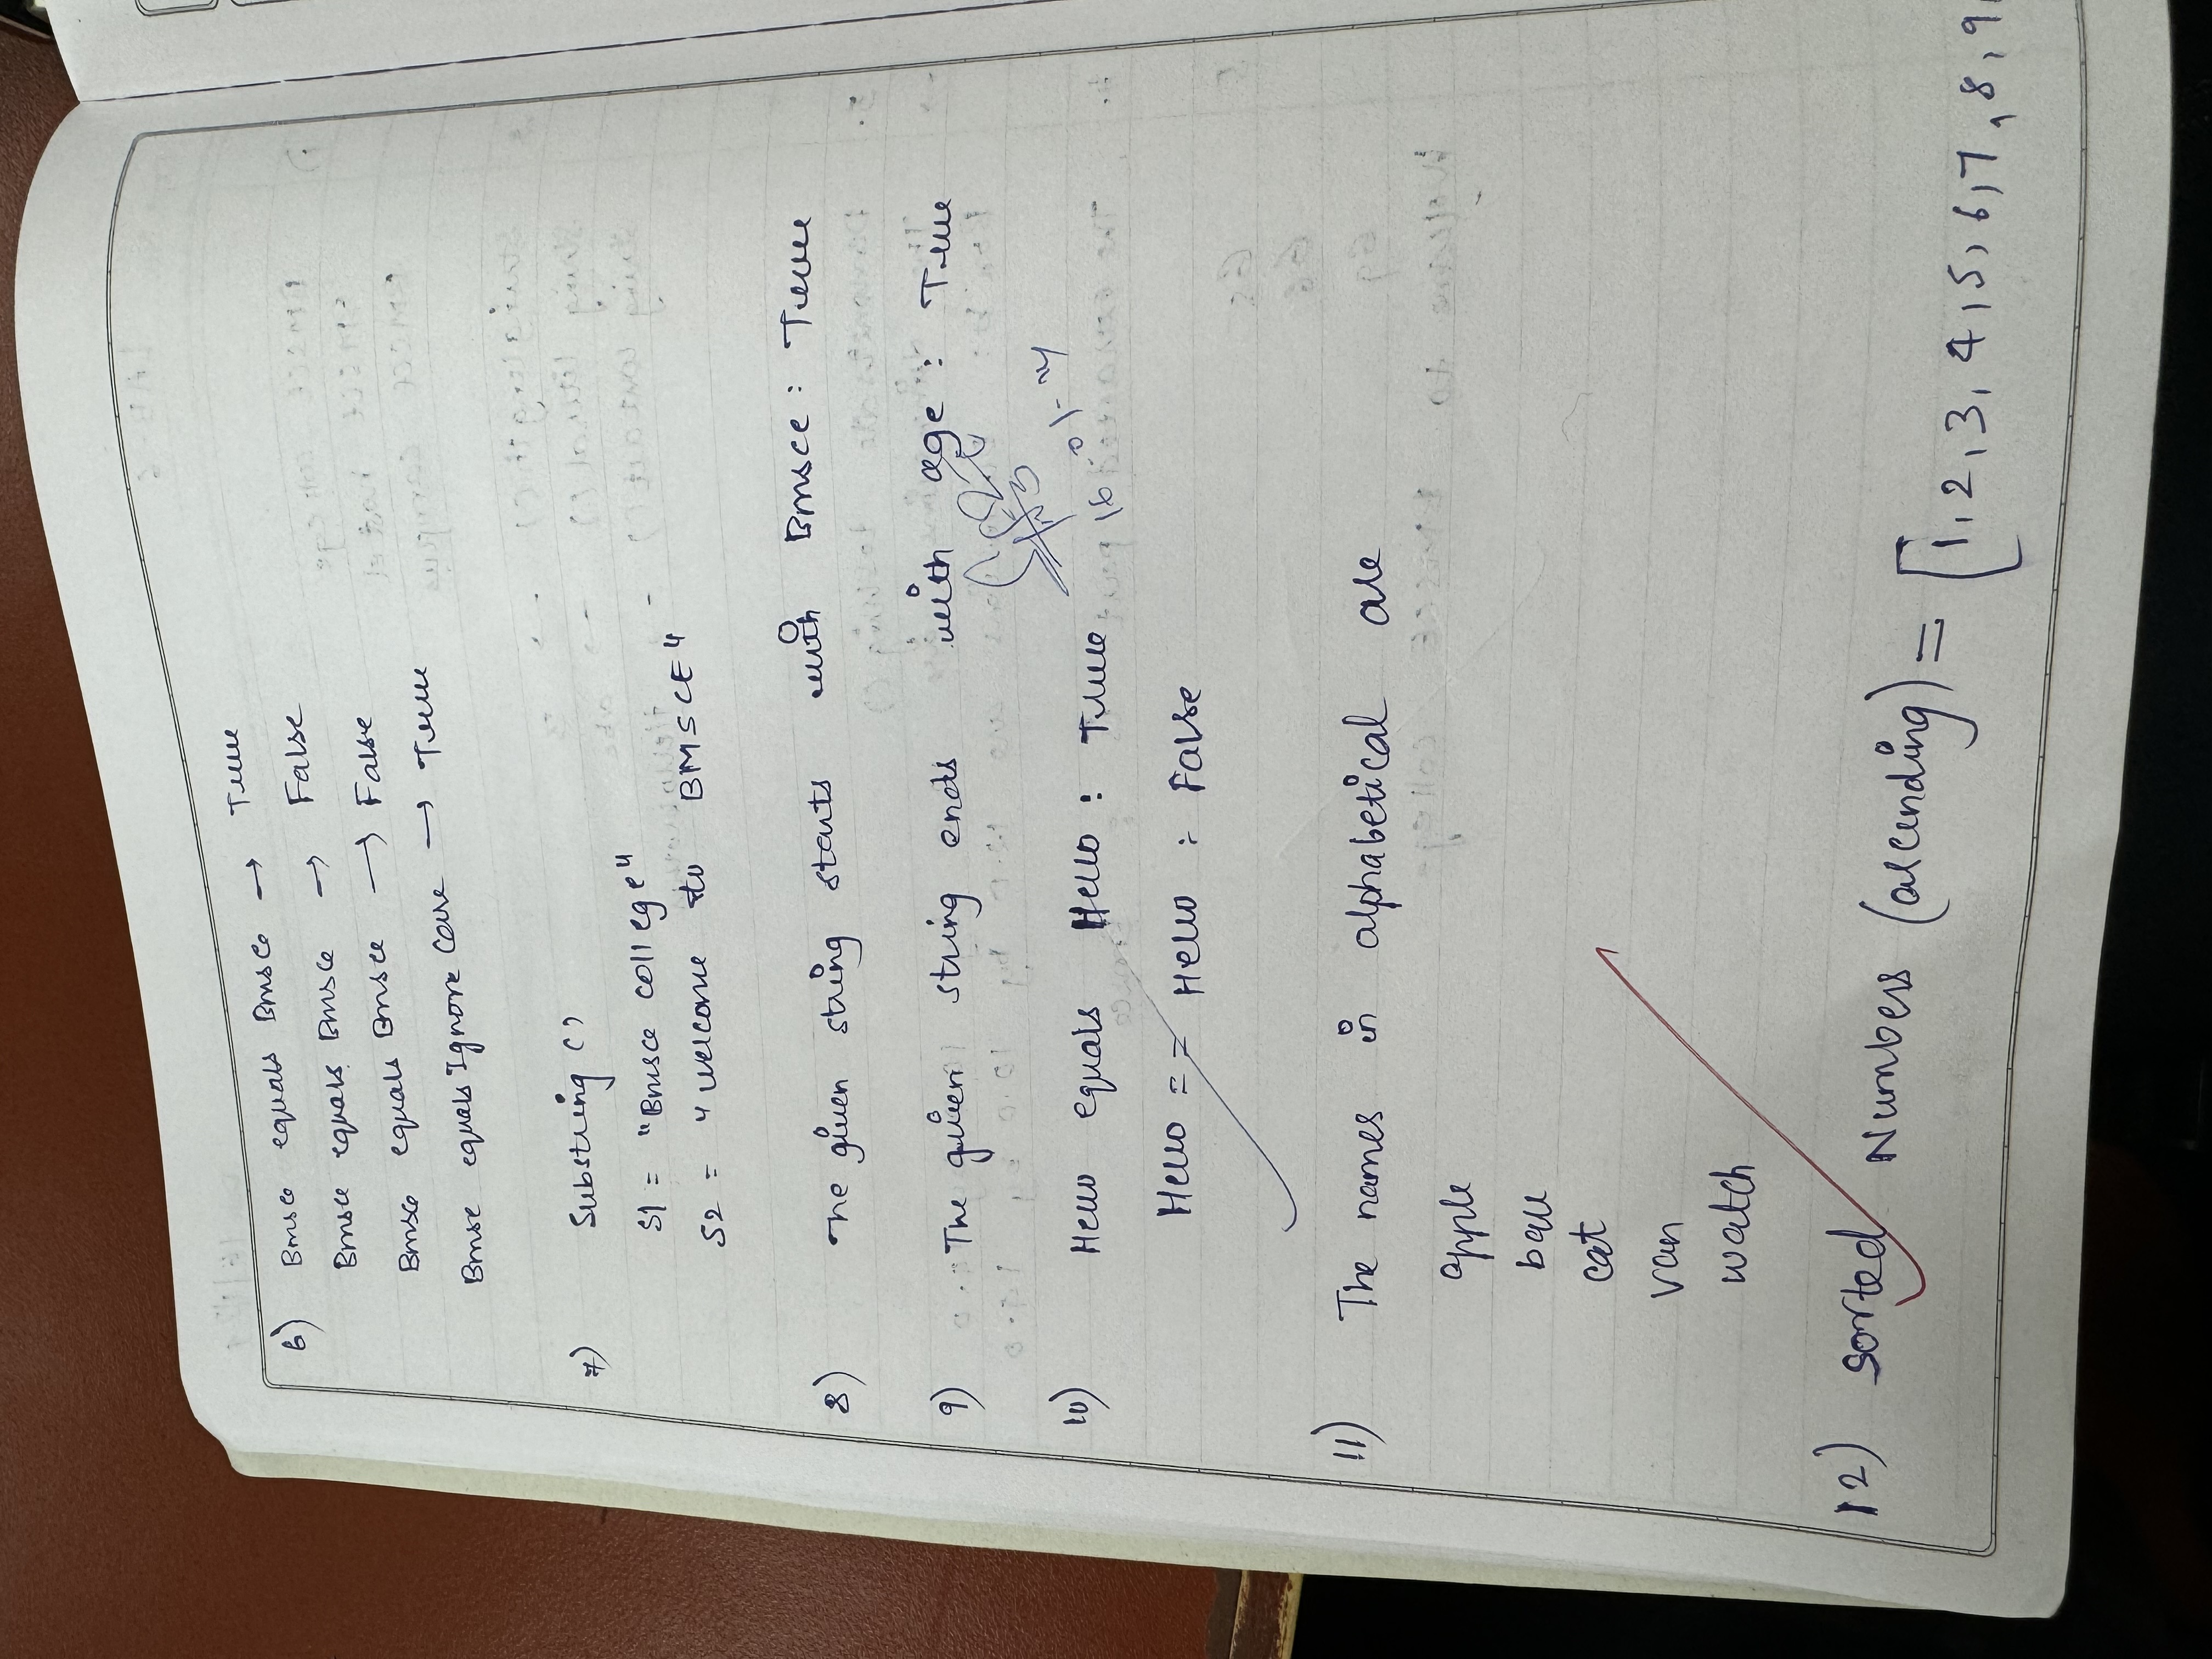 6) Bmsce equals Bmsce → True
Bmsce equals Bmsce → False
Bmsce equals Bmsce → False
Bmse equals Ignore Case → True
7) Substring ()
S1 = "Bmsce college"
S2 = "Welcome to BMSCE"
8) The given string starts with Bmsce : True
9) The given string ends with age : True
10) Hello equals Hello : True
16-01-24
Hello == Hello : False
11) The names in alphabetical are
apple
ball
cat
van
watch
12) Sorted Numbers (ascending) = [1, 2, 3, 4, 5, 6, 7, 8, 9,